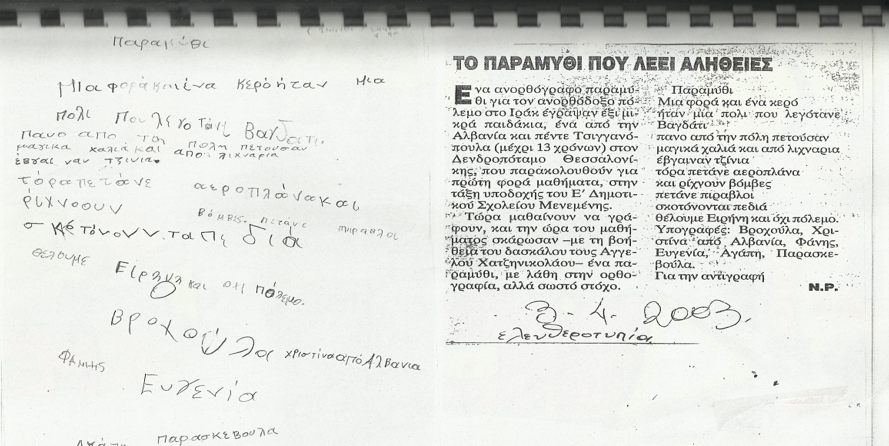 Παραμύθι
Μια φοράκαιένα κερόήταν μια
πολι που λεγοτάΝ Βαγδατι.
πανο απο τον πολη πετουσαν
μαγικα χαλιά και απο λιχναρια
έβγαι ναν τζινια.
τόραπετάνε αεροπλάνακαι
ρίχνοουν βόμβες. πετάνε πιραβλοι
σκοτόνουν. τα πε διά
θέλουμε Ειρήνη και οχι πόλεμο.
Βροχούλα χριστίνααπόΑλβανια
ΦΑΝΗς
Ευγενία
Αγάπη παρασκεβουλα
ΤΟ ΠΑΡΑΜΥΘΙ ΠΟΥ ΛΕΕΙ ΑΛΗΘΕΙΕΣ
Ένα ανορθόγραφο παραμύ-
θι για τον ανορθόδοξο πό-
λεμο στο Ιράκ έγραψαν έξι μι-
κρά παιδάκια, ένα από την
Αλβανία και πέντε Τσιγγανό-
πουλα (μέχρι 13 χρόνων) στον
Δενδροπόταμο Θεσσαλονί-
κης, που παρακολουθούν για
πρώτη φορά μαθήματα, στην
τάξη υποδοχής του Ε' Δημοτι-
κού Σχολείου Μενεμένης.
Τώρα μαθαίνουν να γρά-
φουν, και την ώρα του μαθή-
ματος σκάρωσαν –με τη βοή-
θεια του δασκάλου τους Αγγε-
λου Χατζηνικολάου– ένα πα-
ραμύθι, με λάθη στην ορθο-
γραφία, αλλά σωστό στόχο.
Παραμύθι
Μια φορά και ένα κερό
ήταν μια πολι που λεγότανε
Βαγδάτι
πανο από την πόλη πετούσαν
μαγικά χαλιά και από λιχναρια
έβγαιναν τζίνια
τόρα πετάνε αεροπλάνα
και ρίχγουν βόμβες
πετάνε πιραβλοι
σκοτόνονται πεδιά
θέλουμε Ειρήνη και όχι πόλεμο.
Υπογραφές: Βροχούλα, Χρι-
στίνα από Αλβανία, Φάνης,
Ευγενία, Αγάπη, Παρασκε-
βούλα.
Για την αντιγραφή
Ν.Ρ.
3-4. 2003.
ελευθεροτυπία